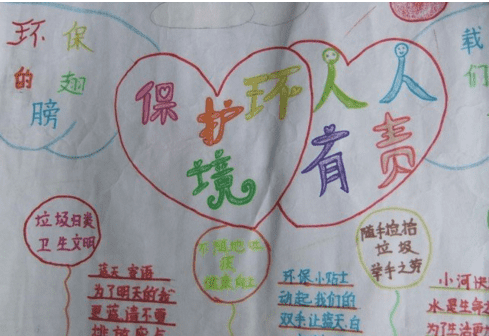 环保
的翅
膀
保护环境
人人有责
载
们
垃圾归类
卫生文明
随手捡拾
垃圾
举手之劳
蓝天寄语
为了明天的
更蓝请不要
环保小贴士
动起我们的
双手让蓝天白
小河快
水是生命
为了生活